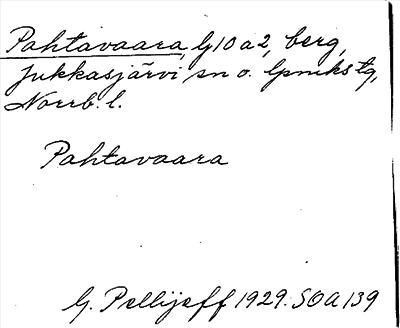 Pahtavaara, G10 a2, berg,
Jukkasjärvi sn o. lpmkstg,
Norrb. l.
Pahtavaara
G. Pellijeff 1929. SOA 139